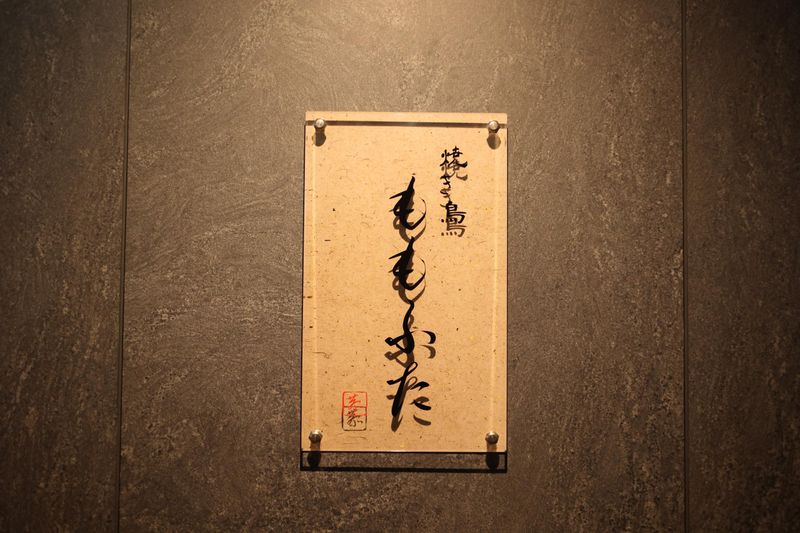 焼き鳥
ももぶた